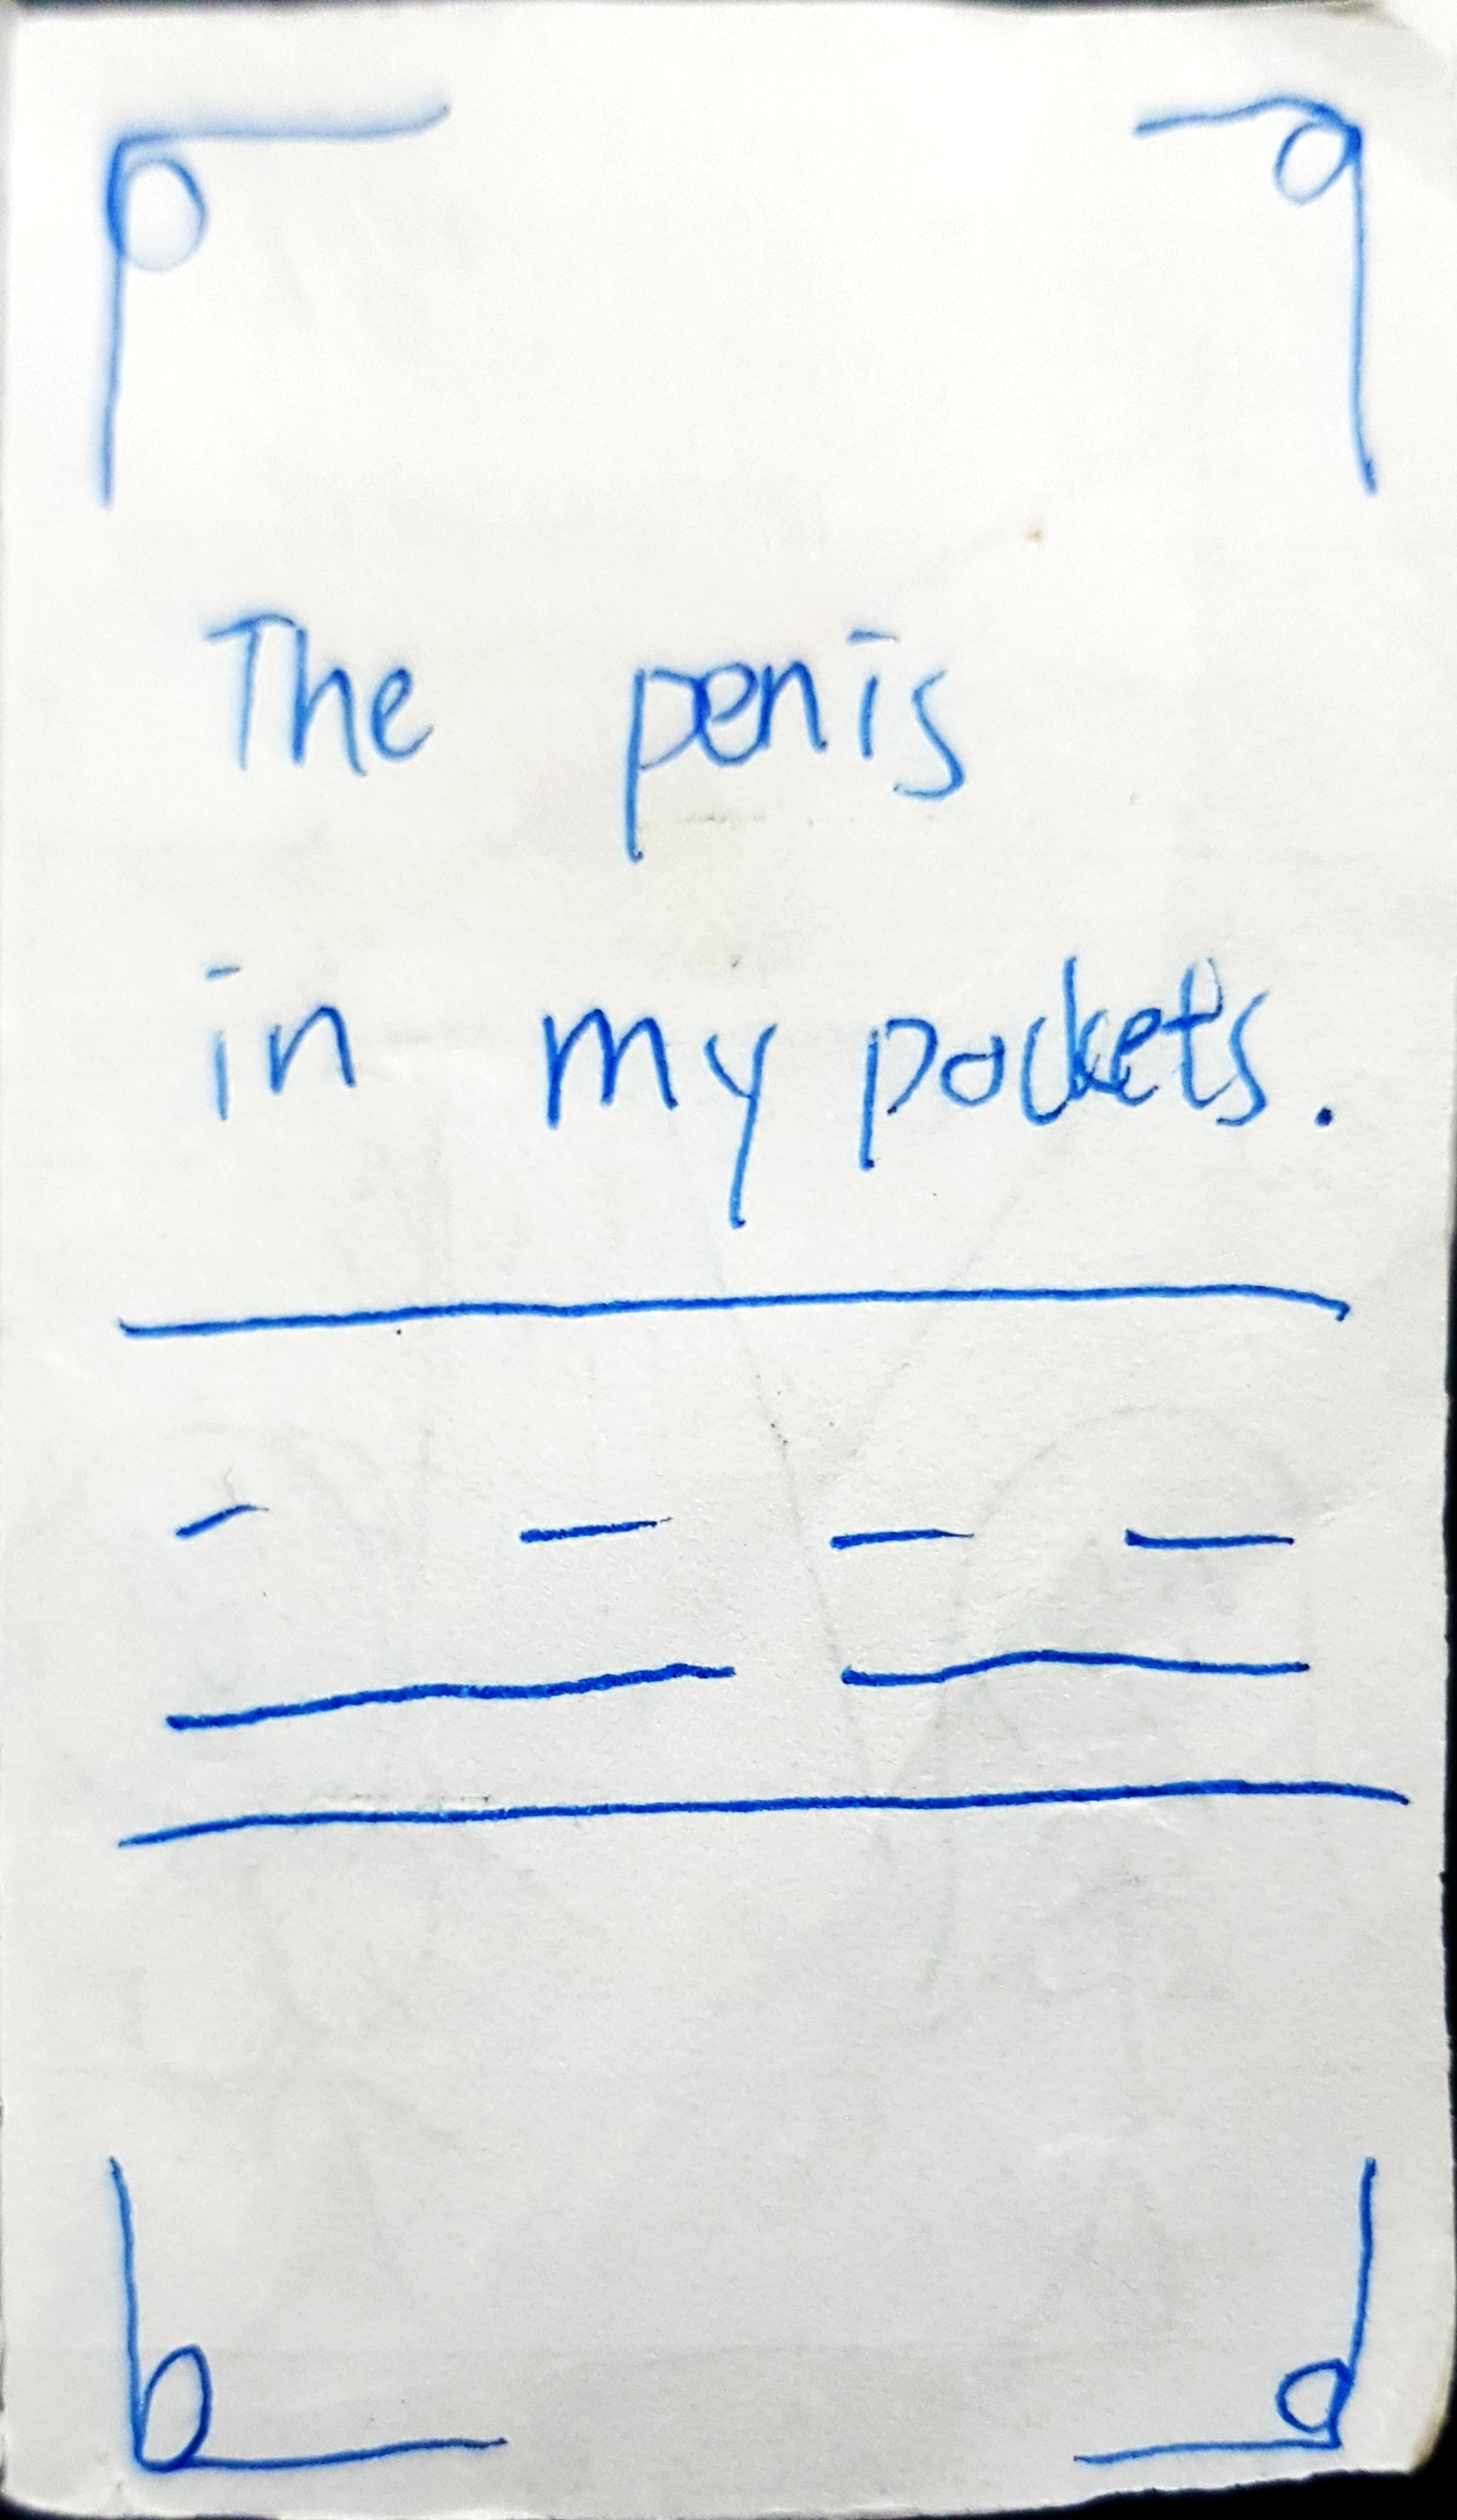 The penis
in my pockets.